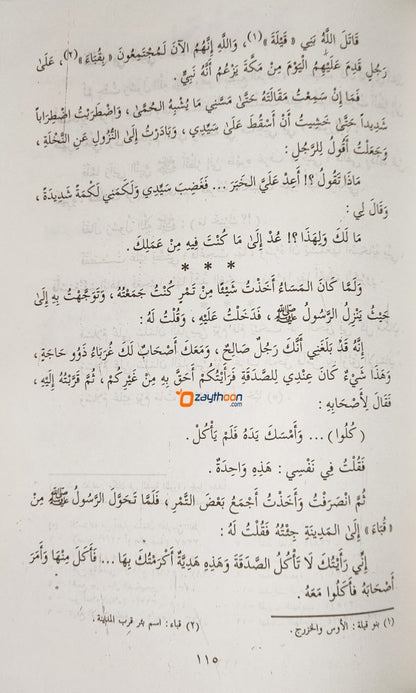 قَاتَلَ اللَّهُ بَنِي « قَيْلَةَ »(١) ، وَاللَّهِ إِنَّهُمُ الْآنَ لَمُجْتَمِعُونَ « بِقُبَاءَ »(٢) ، عَلَىٰ
رَجُلٍ قَدِمَ عَلَيْهِمُ الْيَوْمَ مِنْ مَكَّةَ يَزْعُمُ أَنَّهُ نَبِيٌّ .
فَمَا إِنْ سَمِعْتُ مَقَالَتَهُ حَتَّىٰ مَسَّنِي مَا يُشْبِهُ الْحُمَّىٰ ، وَاضْطَرَبْتُ اضْطِرَاباً
شَدِيداً حَتَّىٰ خَشِيتُ أَنْ أَسْقُطَ عَلَىٰ سَيِّدِي ، وَبَادَرْتُ إِلَىٰ النُّزُولِ عَنِ النَّخْلَةِ ،
وَجَعَلْتُ أَقُولُ لِلرَّجُلِ :
مَاذَا تَقُولُ ؟! أَعِدْ عَلَيَّ الْخَبَرَ ... فَغَضِبَ سَيِّدِي وَلَكَمَنِي لَكْمَةً شَدِيدَةً ،
وَقَالَ لِي :
مَا لَكَ وَلِهَذَا ؟! عُدْ إِلَىٰ مَا كُنْتَ فِيهِ مِنْ عَمَلِكَ .
* * *
وَلَمَّا كَانَ الْمَسَاءُ أَخَذْتُ شَيْئًا مِنْ تَمْرٍ كُنْتُ جَمَعْتُهُ ، وَتَوَجَّهْتُ بِهِ إِلَىٰ
حَيْثُ يَنْزِلُ الرَّسُولُ ﷺ ، فَدَخَلْتُ عَلَيْهِ ، وَقُلْتُ لَهُ :
إِنَّهُ قَدْ بَلَغَنِي أَنَّكَ رَجُلٌ صَالِحٌ ، وَمَعَكَ أَصْحَابٌ لَكَ غُرَبَاءُ ذَوُو حَاجَةٍ ،
وَهَذَا شَيْءٌ كَانَ عِنْدِي لِلصَّدَقَةِ فَرَأَيْتُكُمْ أَحَقَّ بِهِ مِنْ غَيْرِكُمْ ، ثُمَّ قَرَّبْتُهُ إِلَيْهِ ،
فَقَالَ لِأَصْحَابِهِ :
zaythoon.com
( كُلُوا ) ... وَأَمْسَكَ يَدَهُ فَلَمْ يَأْكُلْ .
فَقُلْتُ فِي نَفْسِي : هَذِهِ وَاحِدَةٌ .
ثُمَّ انْصَرَفْتُ وَأَخَذْتُ أَجْمَعُ بَعْضَ التَّمْرِ ، فَلَمَّا تَحَوَّلَ الرَّسُولُ ﷺ مِنْ
« قُبَاءَ » إِلَىٰ الْمَدِينَةِ جِئْتُهُ فَقُلْتُ لَهُ :
إِنِّي رَأَيْتُكَ لَا تَأْكُلُ الصَّدَقَةَ وَهَذِهِ هَدِيَّةٌ أَكْرَمْتُكَ بِهَا ... فَأَكَلَ مِنْهَا وَأَمَرَ
أَصْحَابَهُ فَأَكَلُوا مَعَهُ .
(١) بنو قيلة : الأوس والخزرج .
(٢) قباء : اسم بئر قرب المدينة .
١١٥